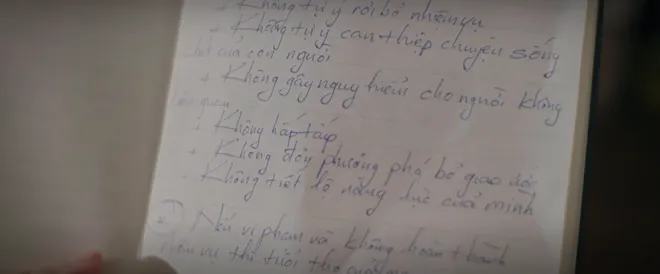 + Không tự ý rời bỏ nhiệm vụ
+ Không tự ý can thiệp chuyện sống
chết của con người
+ Không gây nguy hiểm cho người không
liên quan
+ Không hấp tấp
+ Không đối phương phá bỏ giao ước
- Không tiết lộ năng lực của mình
Nếu vi phạm và không hoàn thành
nhiệm vụ thì tuổi thọ